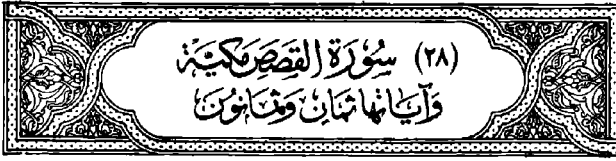 (٢٨) سُورَةُ القَصَصِ مَكِّيَّة
وَآيَاتُهَا ثَمَانٍ وَثَمَانُونَ